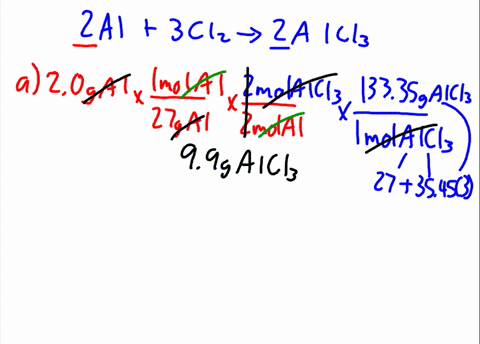 2Al + 3Cl₂ → 2AlCl₃
a) 2.0gAl x 1molAl/27gAl x 2molAlCl₃/2molAl x 133.35gAlCl₃/1molAlCl₃
27+35.45(3)
9.9gAlCl₃